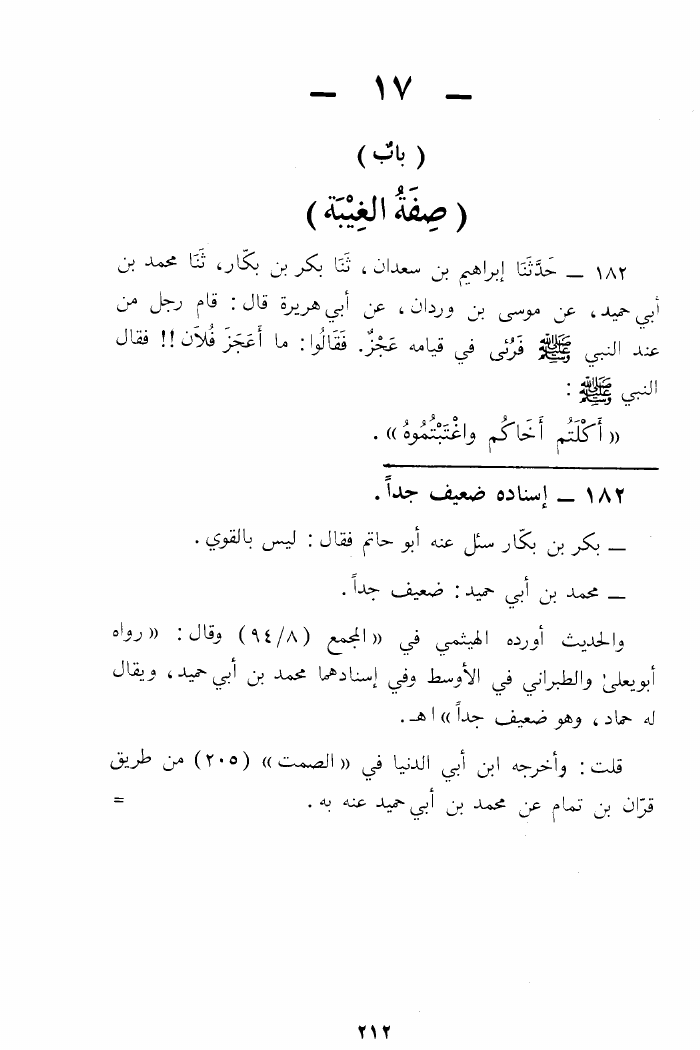 — ١٧ —
( بابٌ )
( صِفَةُ الغِيْبَة )
١٨٢ — حَدَّثَنَا إبراهيم بن سعدان، ثَنَا بكر بن بكّار، ثَنَا محمد بن
أبي حميد، عن موسى بن وردان، عن أبي هريرة قال : قام رجل من
عند النبي ﷺ فَرُئى في قيامه عَجْزٌ. فَقَالُوا : ما أَعَجَزَ فُلَان !! فقال
النبي ﷺ :
« أَكَلْتُم أَخَاكُم واغْتَبْتُمُوهُ » .
١٨٢ — إسناده ضعيف جداً .
— بكر بن بكّار سئل عنه أبو حاتم فقال : ليس بالقوي .
— محمد بن أبي حميد : ضعيف جداً .
والحديث أورده الهيثمي في « المجمع (٩٤/٨) وقال : « رواه
أبو يعلى والطبراني في الأوسط وفي إسنادهما محمد بن أبي حميد، ويقال
له حماد، وهو ضعيف جداً » اهـ.
قلت : وأخرجه ابن أبي الدنيا في « الصمت » (٢٠٥) من طريق
قرّان بن تمام عن محمد بن أبي حميد عنه به . =
٢١٢